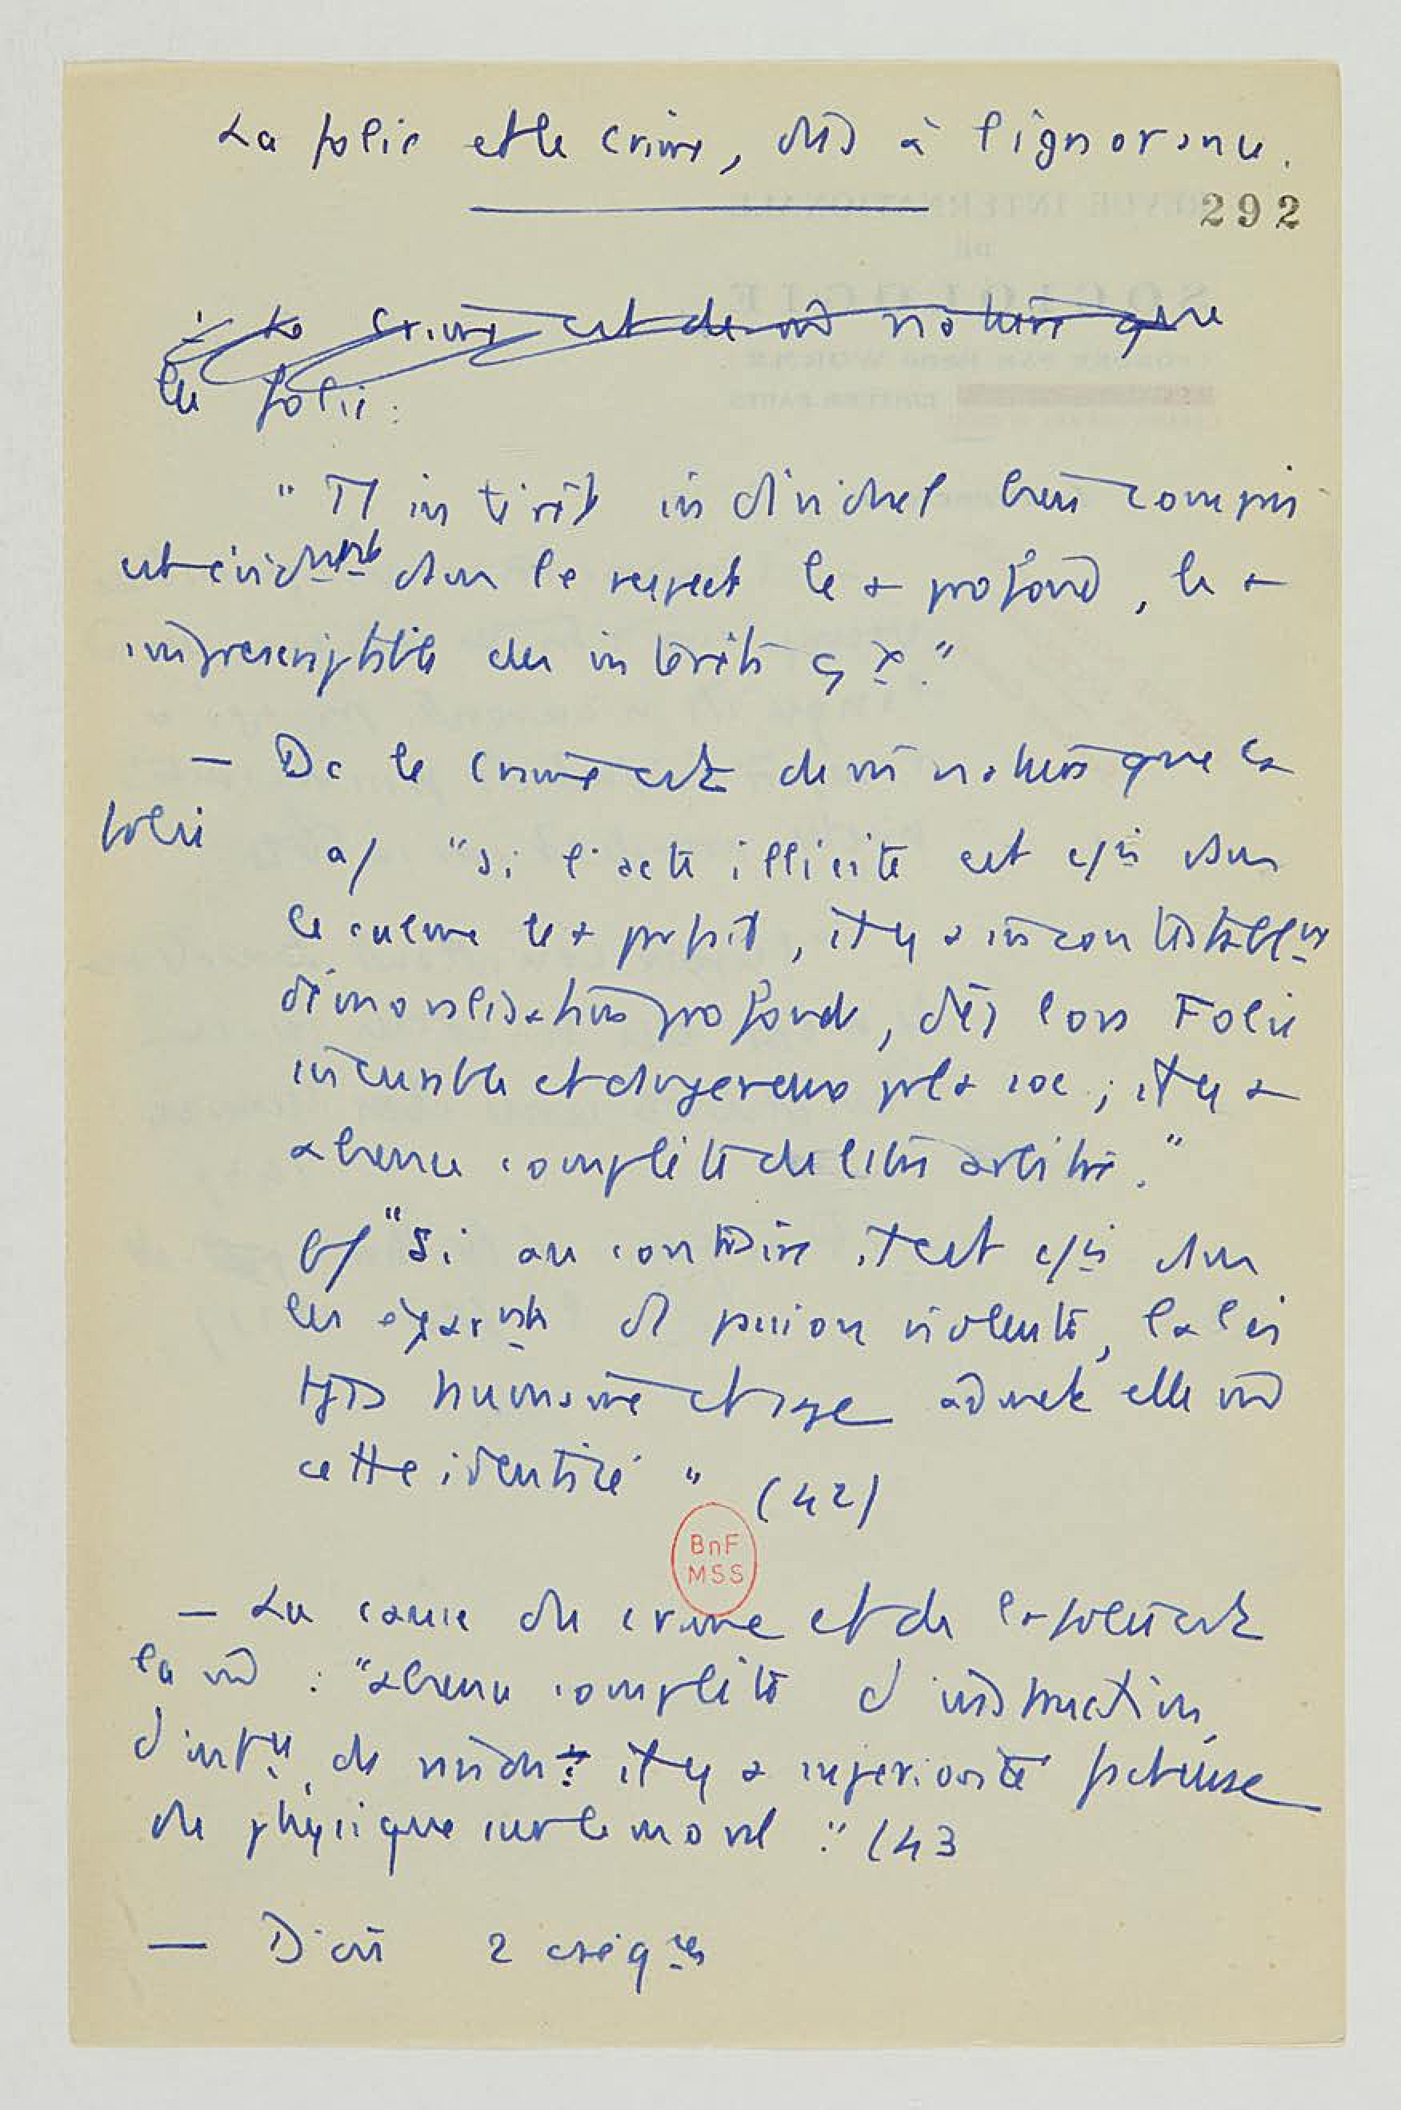 La folie et le crime, dûs à l'ignorance.
292
- Le crime est de m̂ nature que
la folie :
" L'intérêt individuel bien compris
est évidemt dans le respect le + profond, le +
imprescriptible des intérêts
— Dc le crime est de m̂ nature que la
folie
a/ "Si l'acte illicite est cis dans
le calme le + parfait, il y a incontestablt
démoralisation profonde, dès lors Folie
incurable et dangereuse pr la soc ; il y a
absence complète de libre arbitre."
b/ "Si au contraire il est cis dans
les égaremts d passion violente, la loi
tjs humaine et sage admet elle m̂
cette identité " (42)
BnF
MSS
— La cause du crime et de la folie est
la m̂ : "absence complète d'instruction,
d'int de il y a infériorité
du physique sur le moral." (43
— D'où 2 cséqces